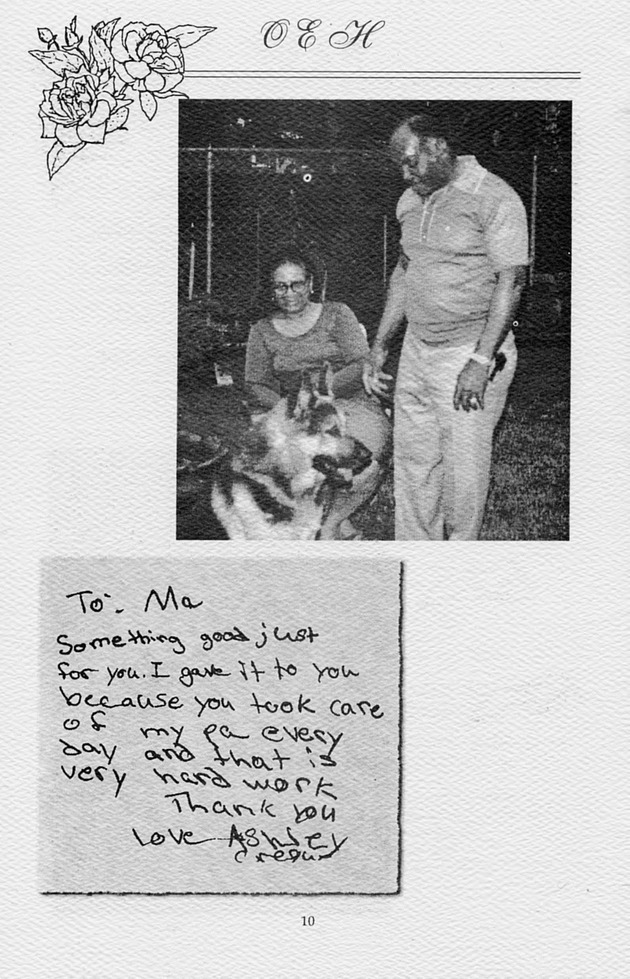 O E H
To: Ma
Something good just
for you. I gave it to you
because you took care
of my pa every
day and that is
very hard work
Thank you
Love Ashley
10